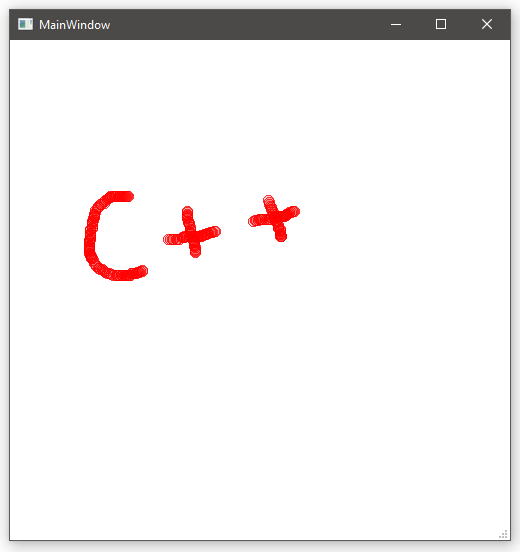 MainWindow
C++